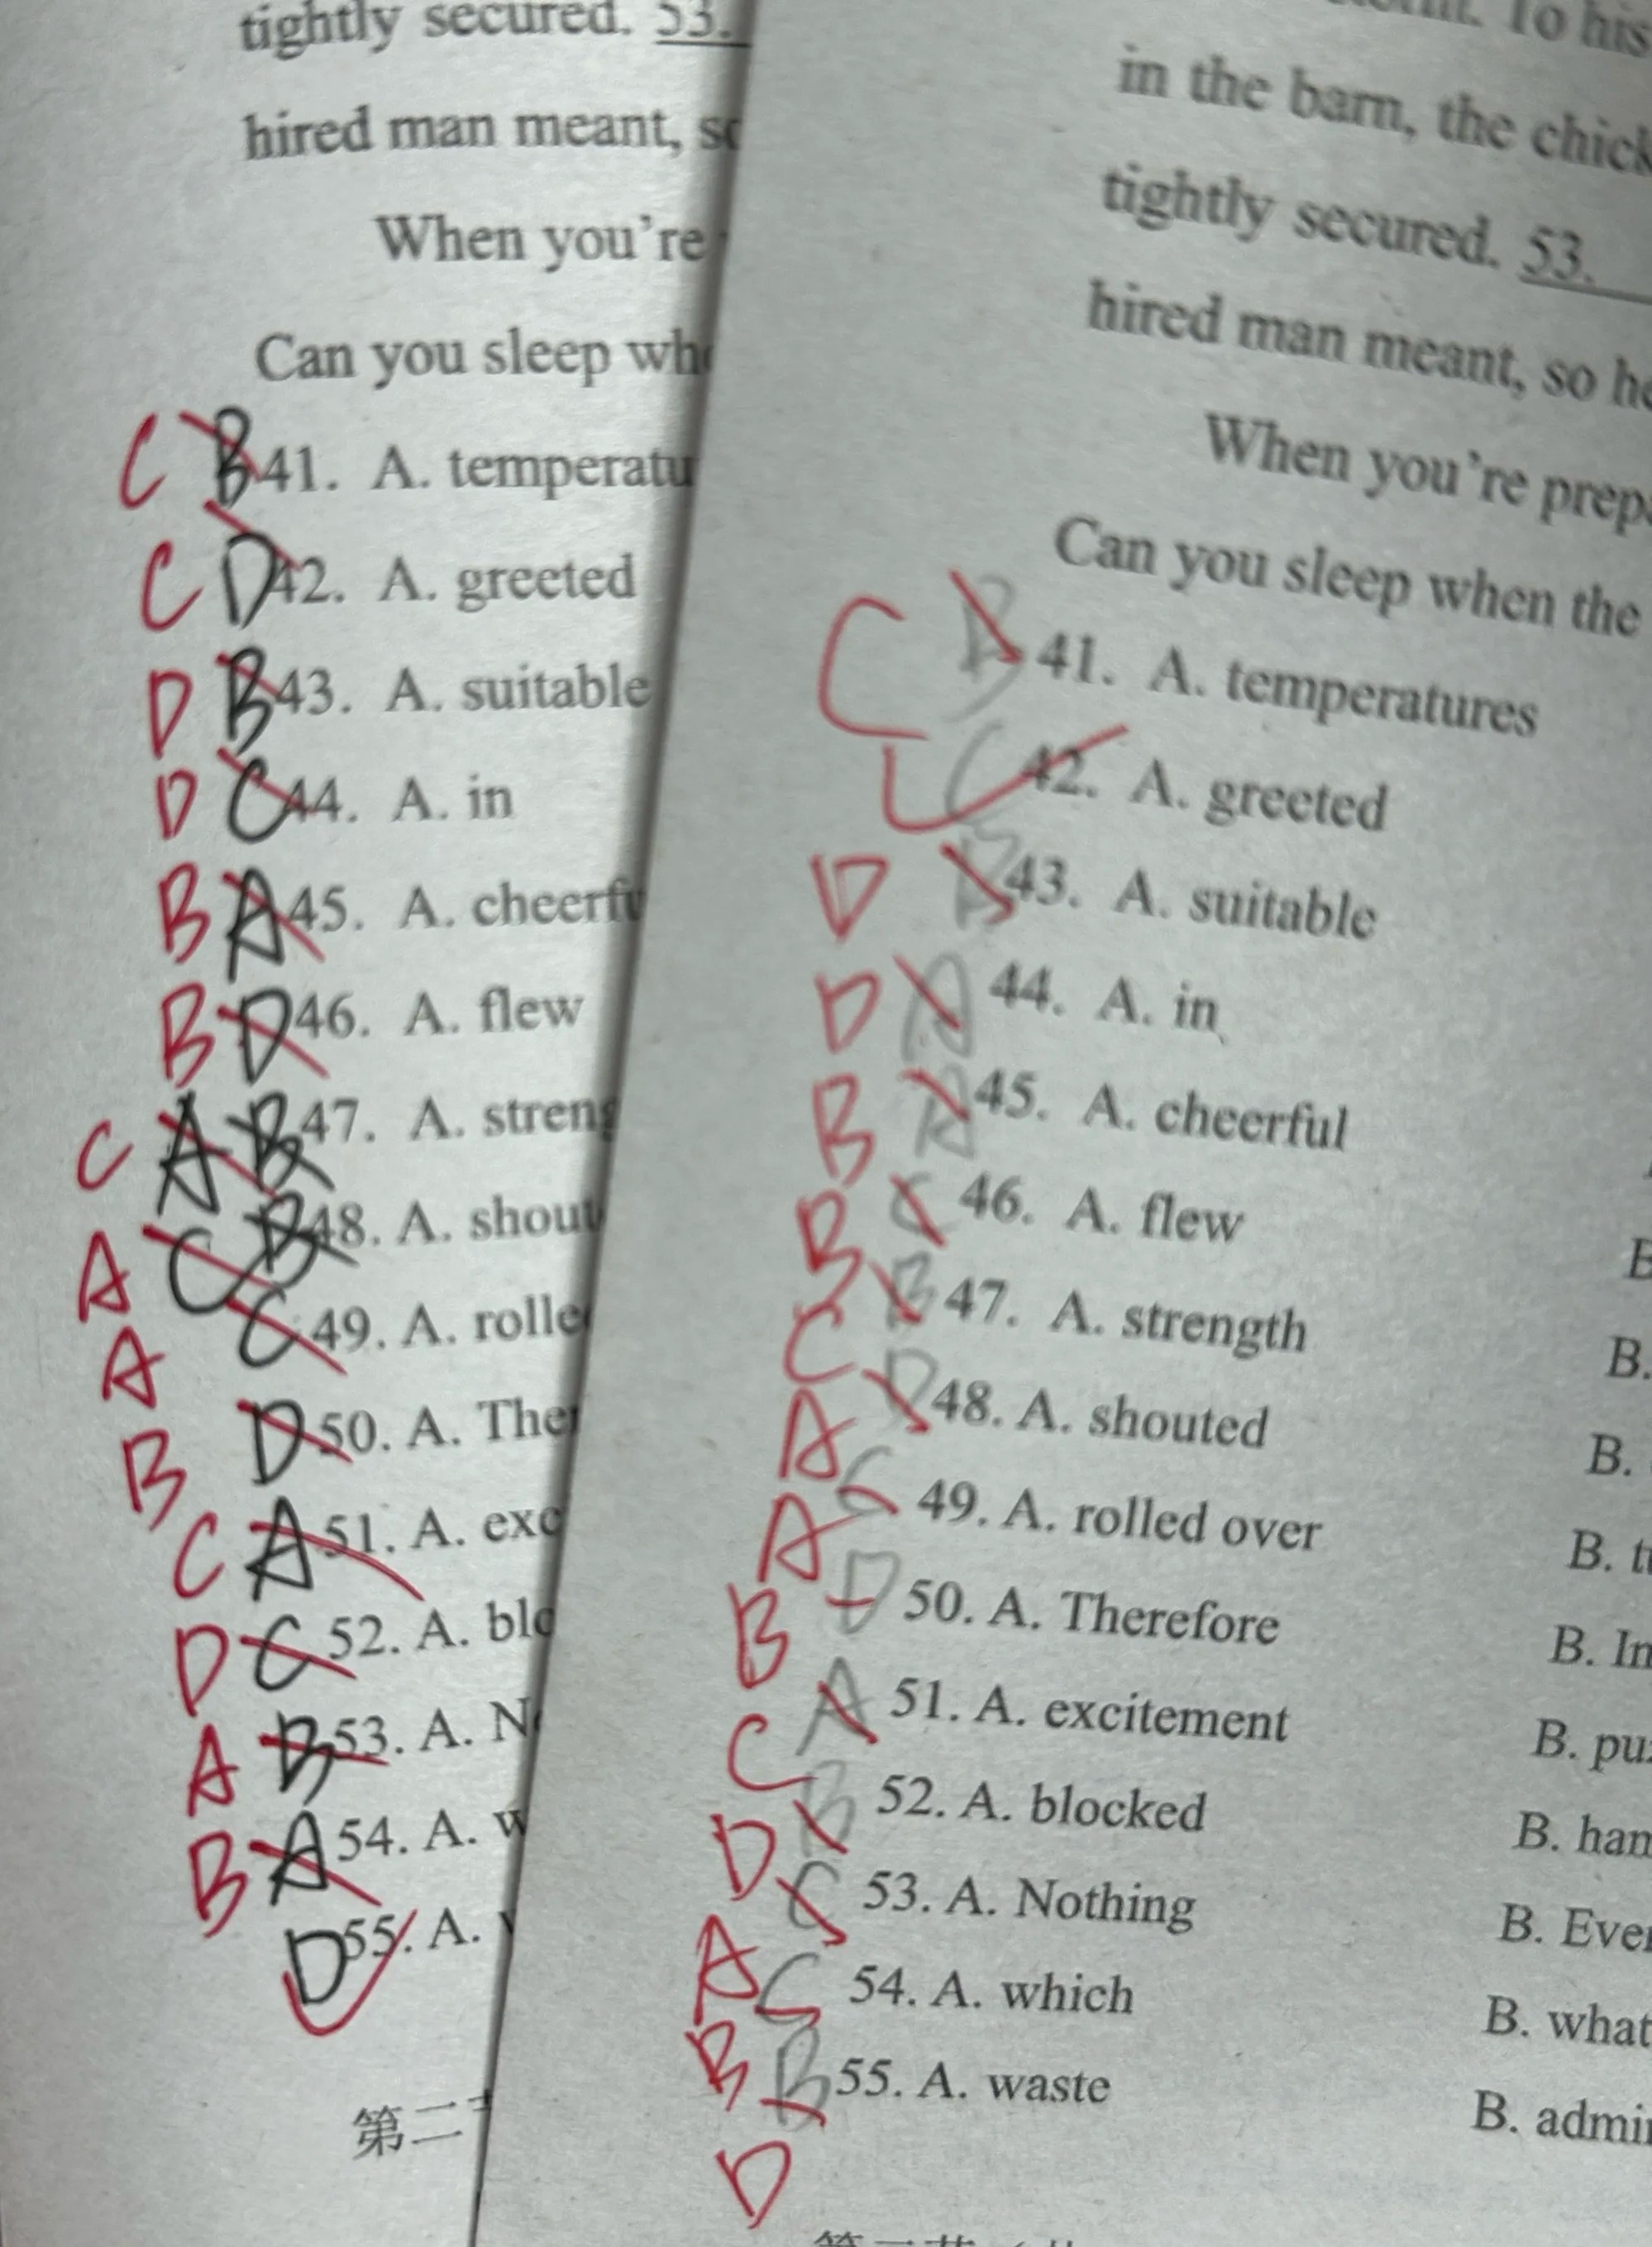 tightly secured. 53.
hired man meant, so
When you're
Can you sleep
C B 41. A. temperatu
C D 42. A. greeted
D B 43. A. suitable
D C 44. A. in
B A 45. A. cheerfu
B D 46. A. flew
C A B 47. A. streng
A C B 48. A. shout
A C 49. A. rolle
B D 50. A. The
C A 51. A. exc
D C 52. A. blo
A B 53. A. N
B A 54. A. w
D 55. A.
第二
To his
in the barn, the chick
tightly secured. 53.
hired man meant, so he
When you're prep
Can you sleep when the
C B 41. A. temperatures
C 42. A. greeted
D B 43. A. suitable
D A 44. A. in
B A 45. A. cheerful
B C 46. A. flew
C B 47. A. strength B.
A D 48. A. shouted B.
A C 49. A. rolled over B. t
B D 50. A. Therefore B. In
C A 51. A. excitement B. pu
D B 52. A. blocked B. han
A C 53. A. Nothing B. Eve
B C 54. A. which B. what
D B 55. A. waste B. admi